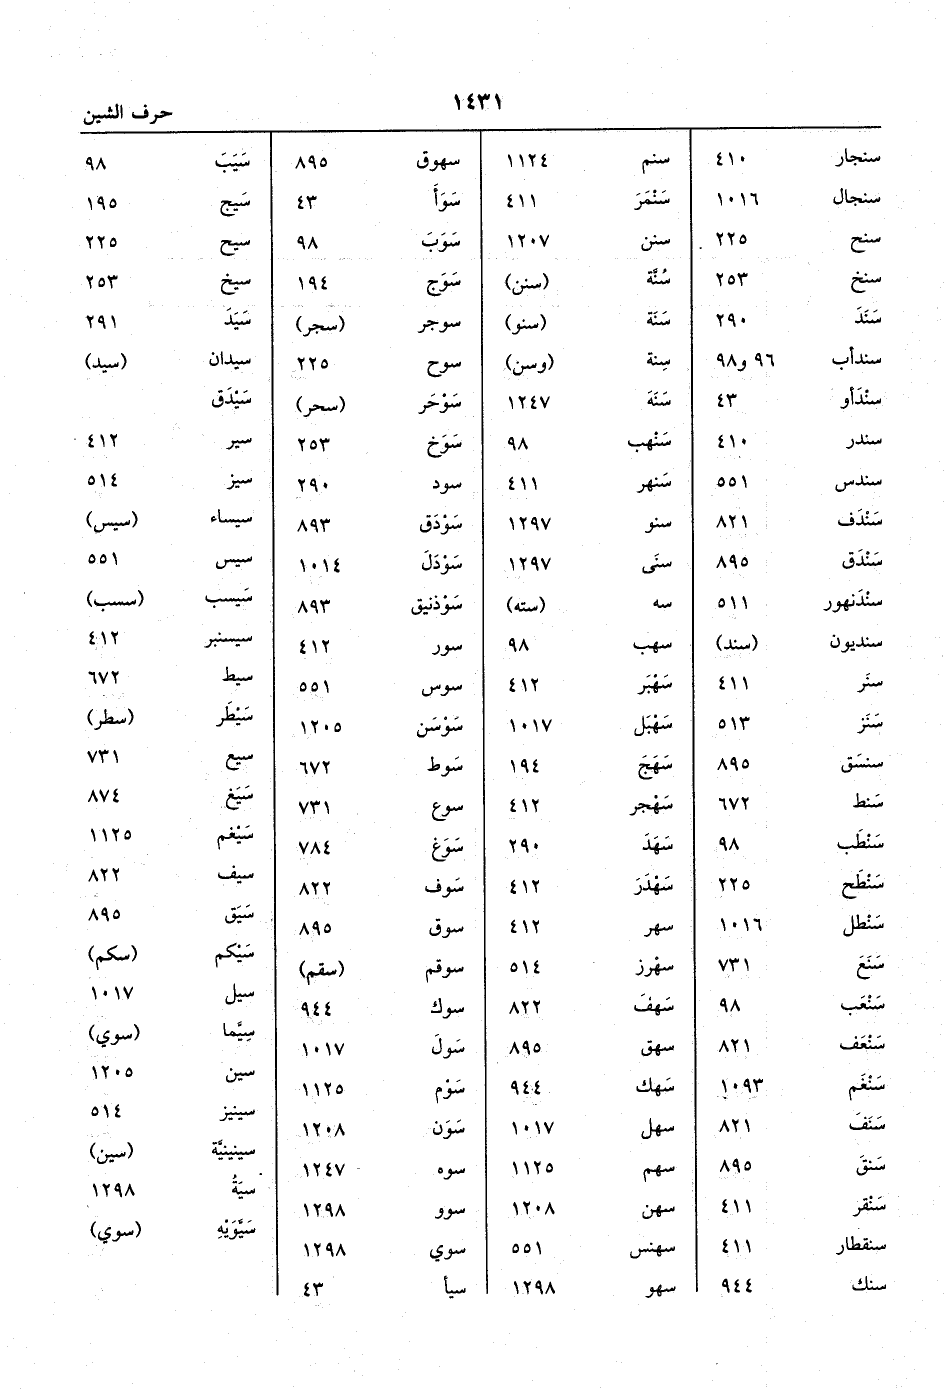 ١٤٣١
حرف الشين
سنجار ٤١٠
سنجال ١٠١٦
سنح ٢٢٥
سنخ ٢٥٣
سَنَدَ ٢٩٠
سندأب ٩٦ و٩٨
سنْدَأو ٤٣
سندر ٤١٠
سندس ٥٥١
سَنْدَف ٨٢١
سَنْدَق ٨٩٥
سنْدَنهور ٥١١
سنديون (سند)
سنَر ٤١١
سَنَز ٥١٣
سنسَق ٨٩٥
سَنط ٦٧٢
سَنْطَب ٩٨
سَنْطَح ٢٢٥
سَنْطل ١٠١٦
سَنَعَ ٧٣١
سَنْعَب ٩٨
سَنْعَف ٨٢١
سَنْغَم ١٠٩٣
سَنَفَ ٨٢١
سَنقَ ٨٩٥
سَنْقر ٤١١
سنقطار ٤١١
سنك ٩٤٤
سنم ١١٢٤
سَنْمَرَ ٤١١
سنن ١٢٠٧
سُنَّة (سنن)
سَنَة (سنو)
سِنة (وسن)
سَنَهَ ١٢٤٧
سَنْهب ٩٨
سَنهر ٤١١
سنو ١٢٩٧
سنَى ١٢٩٧
سه (سته)
سهب ٩٨
سَهْبَر ٤١٢
سَهْبَل ١٠١٧
سَهَجَ ١٩٤
سَهْجر ٤١٢
سَهَدَ ٢٩٠
سَهْدَرَ ٤١٢
سهر ٤١٢
سهْرز ٥١٤
سَهفَ ٨٢٢
سهق ٨٩٥
سَهك ٩٤٤
سهل ١٠١٧
سهم ١١٢٥
سهن ١٢٠٨
سهنس ٥٥١
سهو ١٢٩٨
سهوق ٨٩٥
سَوَأَ ٤٣
سَوَبَ ٩٨
سَوَج ١٩٤
سوجر (سجر)
سوح ٢٢٥
سَوْحَر (سحر)
سَوَخ ٢٥٣
سود ٢٩٠
سَوْدَق ٨٩٣
سَوْدَلَ ١٠١٤
سَوْذنيق ٨٩٣
سور ٤١٢
سوس ٥٥١
سَوْسَن ١٢٠٥
سَوط ٦٧٢
سوع ٧٣١
سَوَغ ٧٨٤
سَوف ٨٢٢
سوق ٨٩٥
سوقم (سقم)
سوك ٩٤٤
سَولَ ١٠١٧
سَوْم ١١٢٥
سَوَن ١٢٠٨
سوه ١٢٤٧
سوو ١٢٩٨
سوي ١٢٩٨
سيأ ٤٣
سَيَبَ ٩٨
سَيج ١٩٥
سيح ٢٢٥
سيخ ٢٥٣
سَيَدَ ٢٩١
سيدان (سيد)
سَيْدَق
سير ٤١٢
سيز ٥١٤
سيساء (سيس)
سيس ٥٥١
سَيسب (سسب)
سيسنبر ٤١٢
سيط ٦٧٢
سَيْطَر (سطر)
سيع ٧٣١
سَيَغ ٨٧٤
سَيْغم ١١٢٥
سيف ٨٢٢
سَيَق ٨٩٥
سَيْكم (سكم)
سيل ١٠١٧
سِيَّما (سوي)
سين ١٢٠٥
سينيز ٥١٤
سينينيَّة (سين)
سيَةُ ١٢٩٨
سَيَّوَيْهِ (سوي)